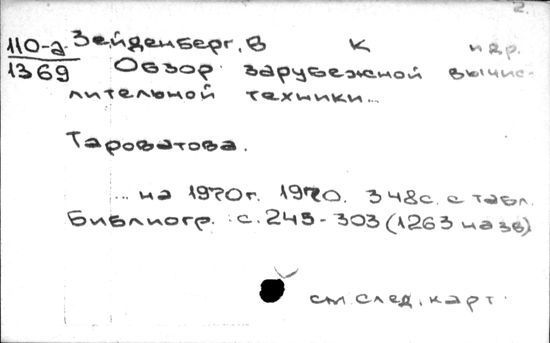 2.
110-а Зейденберг, В К и др.
1369 Обзор зарубежной вычис-
лительной техники...
Тароватова.
... на 1970г. 1970. 348с. с табл.
Библиогр. с. 245-303 (1263 назв)
см. след. карт.